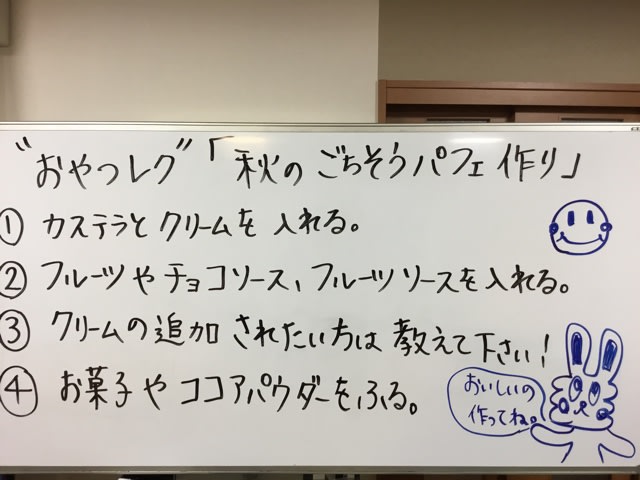 “おやつレク”「秋のごちそうパフェ作り」
① カステラとクリームを入れる。
② フルーツやチョコソース、フルーツソースを入れる。
③ クリームの追加されたい方は教えて下さい!
④ お菓子やココアパウダーをふる。
おいしいの
作ってね。